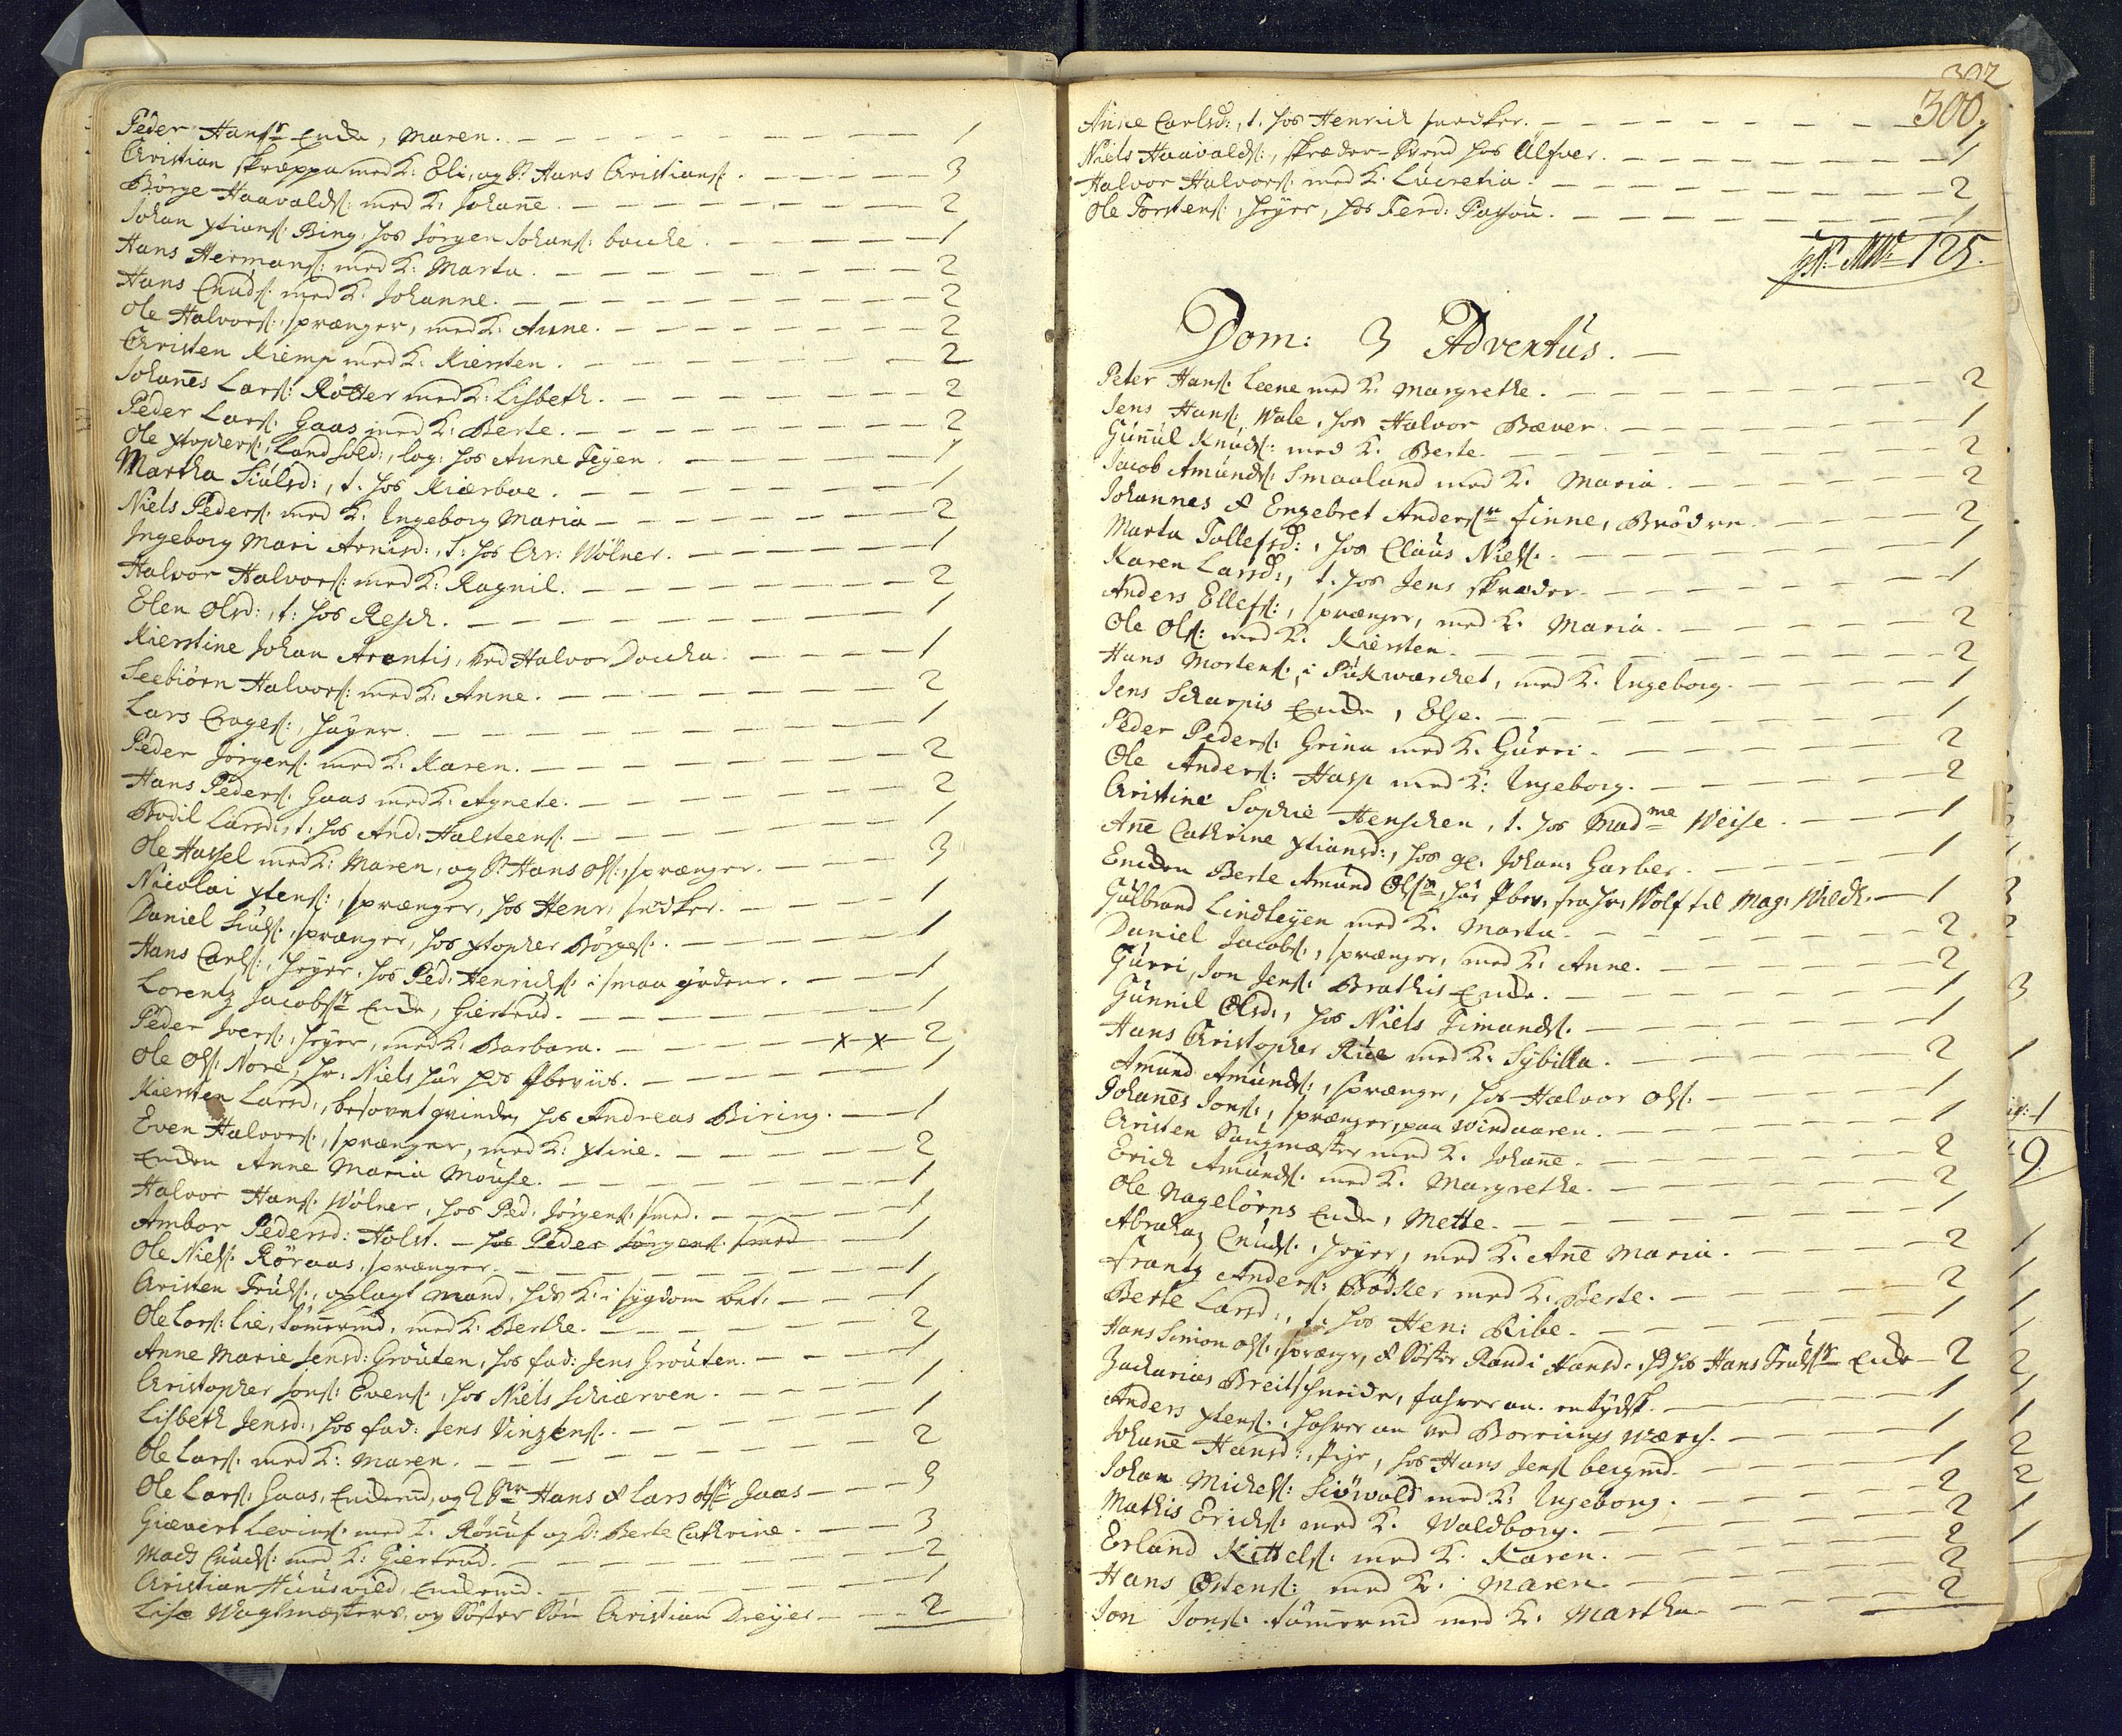 Peder Hansr Encke, Maren. 1
Christian skræppa med K: Eli, og S: Hans Christians: 3
Börge Haavalds: med K: Johane. 2
Johan xtians: Bing, hos Jörgen Johans: backe. 1
Hans Hermans: med K: Marta. 2
Hans Cnuds: med K: Johanne. 2
Ole Halvors:, sprænger, med K: Anne. 2
Christen Kiemp med K: Kiersten. 2
Johanes Lars: Rötter med K: Lisbeth. 2
Peder Lars: Gaas med K: Berte. 2
Ole xtophers:, Land sold:, log: hos Anne Teyen. 1
Martha Siulsd:, t. hos Kiærboe. 1
Niels Peders: med K: Ingeborg Maria 2
Ingeborg Mari Arnisd:, t: hos Chr: Wölner. 1
Halvor Halvors: med K: Ragnil. 2
Elen Olsd:, t: hos Resch. 1
Kierstine Johan Arentis, ved Halvor Dockn. 1
Seebiörn Halvors: med K: Anne. 2
Lars Crages:, Heyer. 1
Peder Jörgens: med K: Karen. 2
Hans Peders: Gaas med K: Agnete. 2
Bodil Larsd:, t: hos And: Halsteens: 1
Ole Hassel med K: Maren, og S: Hans Ols:, sprænger. 3
Nicolai xtens:, sprænger, hos Henr: snedker. 1
Daniel Siuls:, sprænger, hos xtopher Börges: 1
Hans Carls:, Heyer, hos Ped: Henrichs: i smaa gydene. 1
Lorentz Jacobsr Encke, Giertrud. 1
Peder Ivers:, Heyer, med K: Barbara. x x 2
Ole Ols: Nore, Hr: Niels har hos beviis. 1
Kiersten Larsd:, besovet qvinde, hos Andreas Biring. 1
Even Halvors:, sprænger, med K: xtine. 2
Encken Anne Maria Mouse. 1
Halvor Hans: Wölner, hos Ped: Jörgens: smed. 1
Ambor Pedersd: Holst. – hos Peder Jörgens: smed 1
Ole Niels: Röraas, sprænger. 1
Christen Truls:, oplagt mand, hos K: i sygdom bet: 1
Ole Lars: Lie, tömermd, med K: Berthe. 2
Anne Marie Jensd: Grouten, hos fad: Jens Grouten. 1
Christopher Jons: Evens:, hos Niels Schiærven. 1
Lisbeth Jensd:, hos fad: Jens Vinzens: 1
Ole Lars: med K: Maren. 2
Ole Lars: Gaas, Enckemd, og 2 Sr Hans & Lars Olsr Gaas 3
Giævert Levins: med K: Rönnuf og D: Berte Cathrine. 3
Mads Cnuds: med K: Giertrud. 2
Christian Huusvild, Enckemd. 1
Lise Wagtmesters, og Söster Sön Christian Dreyer 2
302
300.
Anne Carlsd:, t. hos Henrich snedker. 1
Niels Haavalds:, skræder-Svend hos Ulfver. 1
Halvor Halvors: med K: Lucretia. 2
Ole Torstens:, Heyer, hos Ferd: Passou. 1
125.
Dom: 3 Adventus.
Peter Hans: Leene med K: Margrethe. 2
Jens Hans: Wale, hos Halvor Bæver. 1
Gunul Knuds: med K: Berte. 2
Jacob Amunds: Smaaland med K: Maria. 2
Johannes & Engebret Andersr Finne, Brödre. 2
Marta Tollefsd:, hos Claus Niels: 1
Karen Larsd:, t. hos Jens skræder. 1
Anders Ellefs:, sprænger, med K: Maria. 2
Ole Ols: med K: Kiersten. 2
Hans Mortens:, i Pukwærcket, med K: Ingeborg. 1
Jens Scharpis Encke, Else. 1
Peder Peders: Grina med K: Gurri. 2
Ole Anders: Hasp med K: Ingeborg. 2
Christine Sophie Henschen, t. hos Madme Weise 1
Ane Cathrine xtiansd:, hos gl: Johan: Garber. 1
Encken Berte Amund Olsr, har bev: fra Hr: Wolf til Mag: Wildh. 1
Gulbrand Lindteyen med K: Marta. 2
Daniel Jacobs:, sprænger, med K: Anne. 2
Gurri, Jon Jens: Brathis Encke. 1
Gunnil Olsd:, hos Niels Simunds: 1
Hans Christopher Rue med K: Sybilla. 2
Amund Amunds:, sprænger, hos Halvor Ols: 1
Johanes Jons:, sprænger, paa Windaaren. 1
Christen Saugmæster med K: Johane. 2
Erich Amunds: med K: Margrethe. 2
Ole Nagelörns Encke, Mette. 1
Abraham Cnuds:, Heyer, med K: Ane Maria. 2
Frantz Anders: Bödker med K: Berte. 2
Berte Larsd:, t. hos Hen: Ribe. 1
Hans Simon Ols:, sprænger, & Söster Randi Hansd: hos Hans Trulsr Encke 2
Zacharias Breitschneider, fahrer an. en tydsk. 1
Anders xtens:, fahrer an ved Borrings wærch. 1
Johane Hansd:, Pige, hos Hans Jens: bergmd. 1
Johan Michels: Siöwold med K: Ingeborg. 2
Mathis Erichs: med K: Waldborg. 2
Erland Kittels: med K: Karen. 2
Hans Ostens: med K: Maren. 2
Jon Jons: tömermd med K: Martha 2